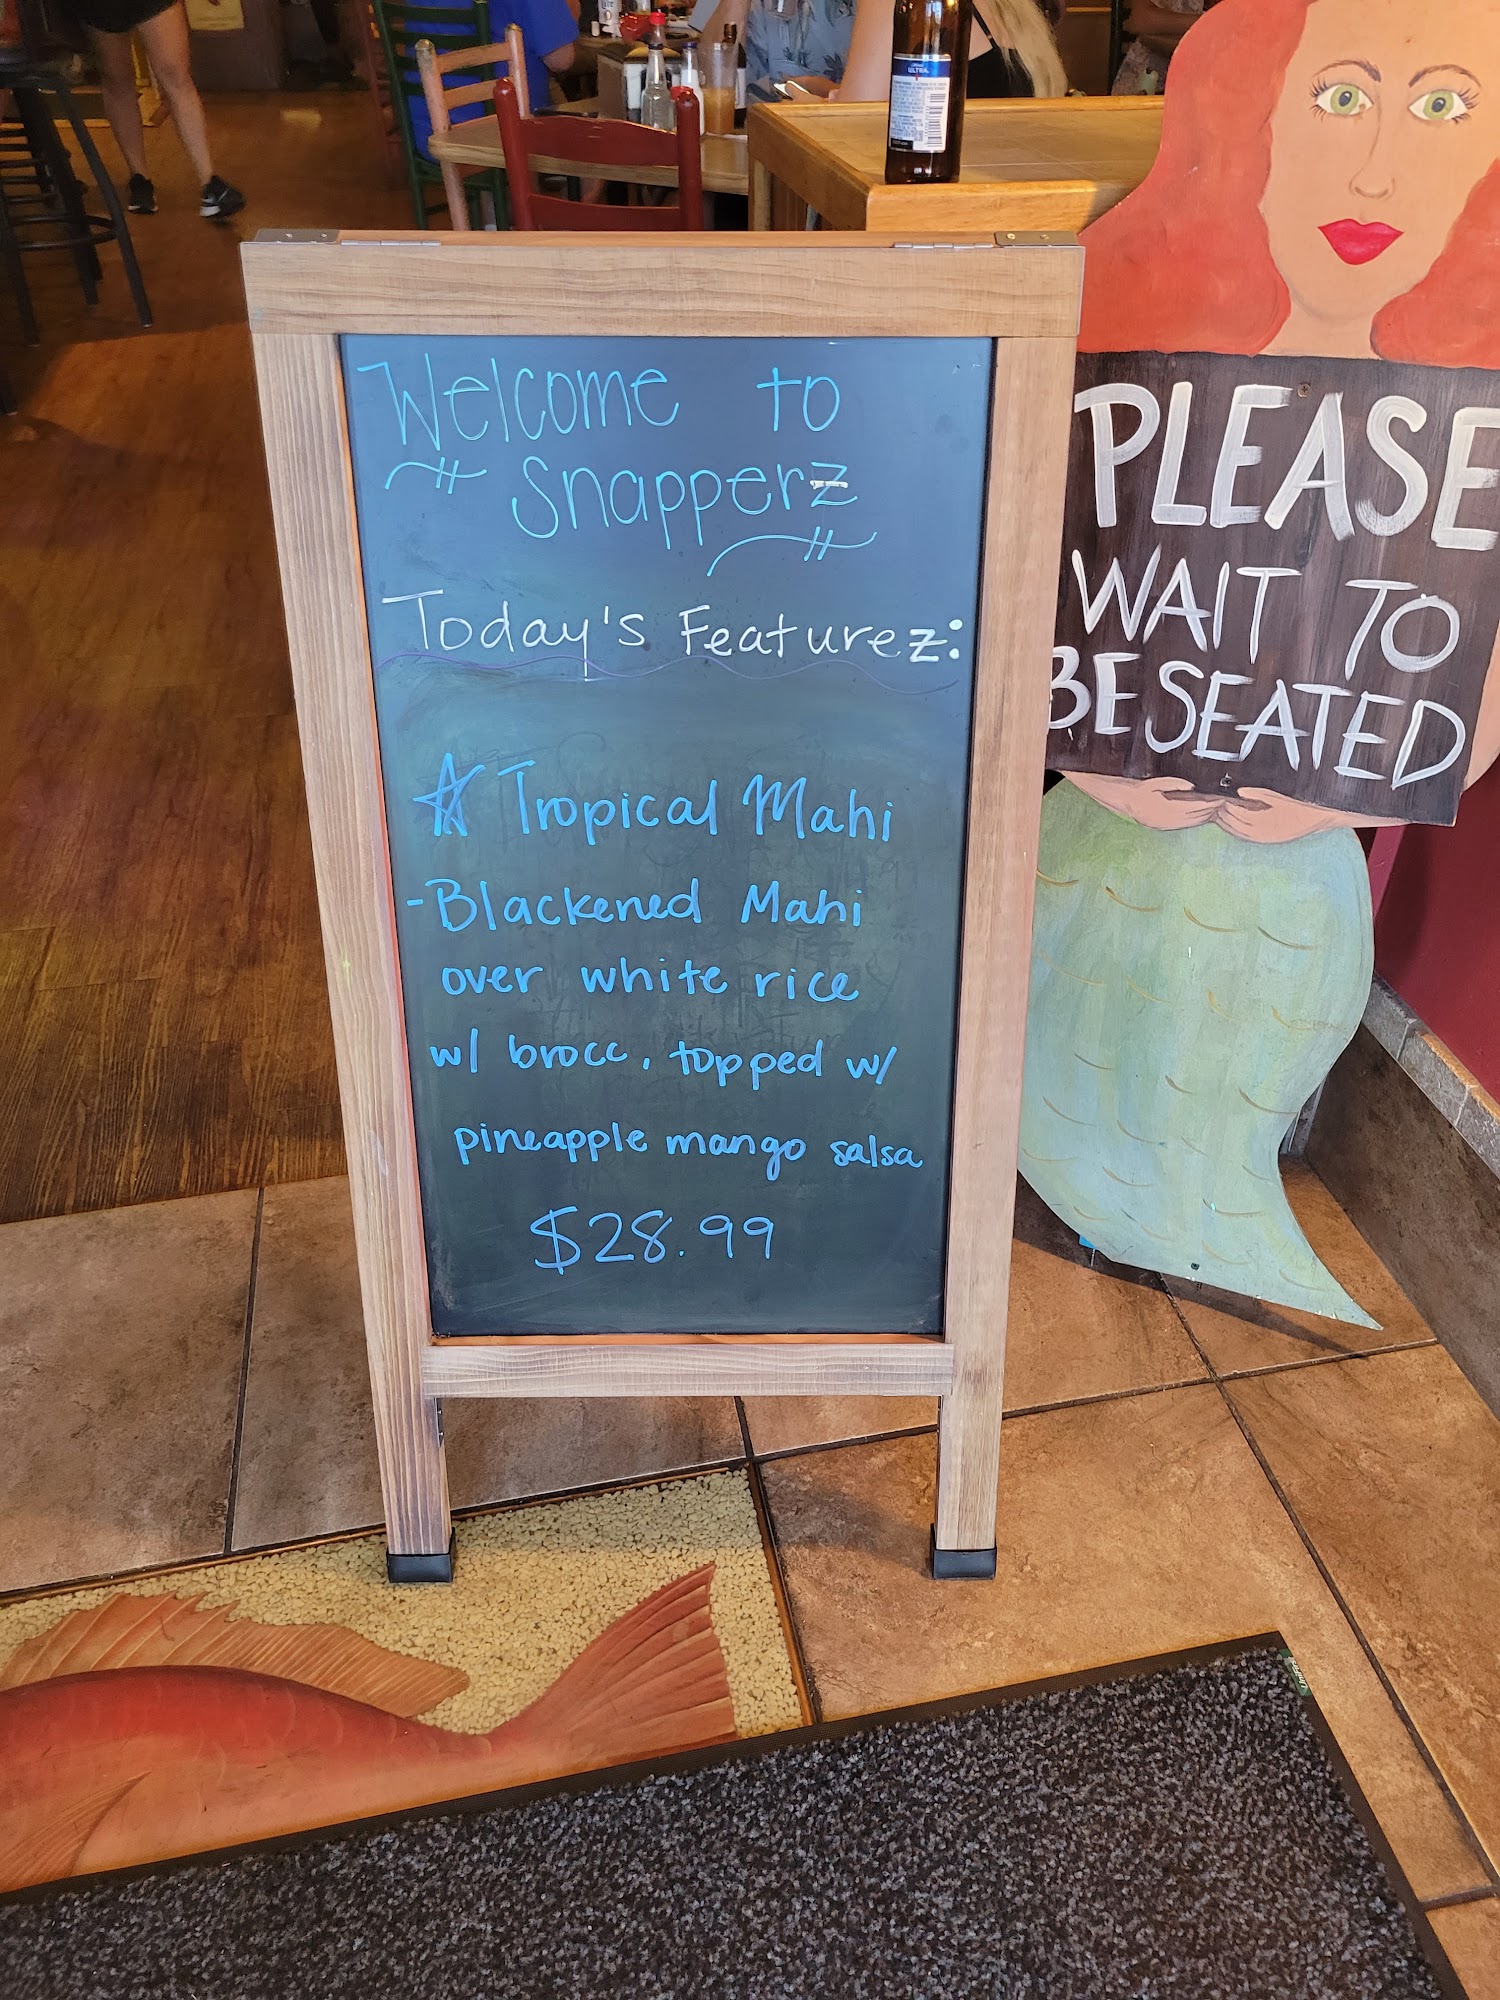 Welcome to
Snapperz
Today's Featurez:
☆ Tropical Mahi
-Blackened Mahi
over white rice
w/ brocc, topped w/
pineapple mango salsa
$28.99
PLEASE
WAIT TO
BE SEATED
ULTRA